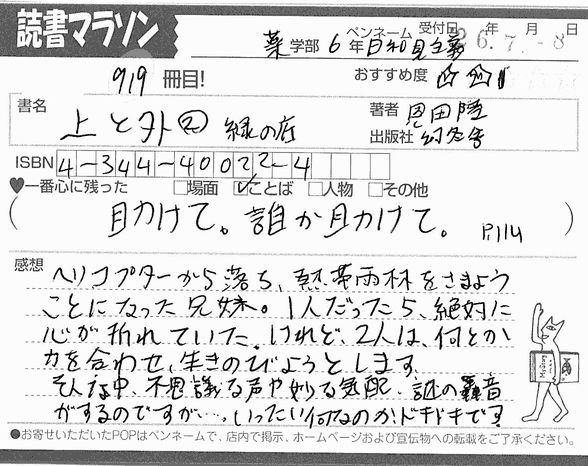 読書マラソン
薬学部 6年 ペンネーム 日和見主義 受付日 年 月 日
6.7.-8
919冊目!
おすすめ度
書名 上と外② 緑の底
著者 恩田陸
出版社 幻冬舎
ISBN 4-344-40022-4
♥一番心に残った □場面 ☑ことば □人物 □その他
(助けて。誰か助けて。 P.114)
感想 ヘリコプターから落ち、熱帯雨林をさまよう
ことになった兄妹。1人だったら、絶対に
心が折れていた。けれど、2人は、何とか
力を合わせ、生きのびようとします。
そんな中、不思議な声や妙な気配、謎の轟音
がするのですが…、いったい何なのかドキドキです
●お寄せいただいたPOPはペンネームで、店内で掲示、ホームページおよび宣伝物への転載をご了承ください。